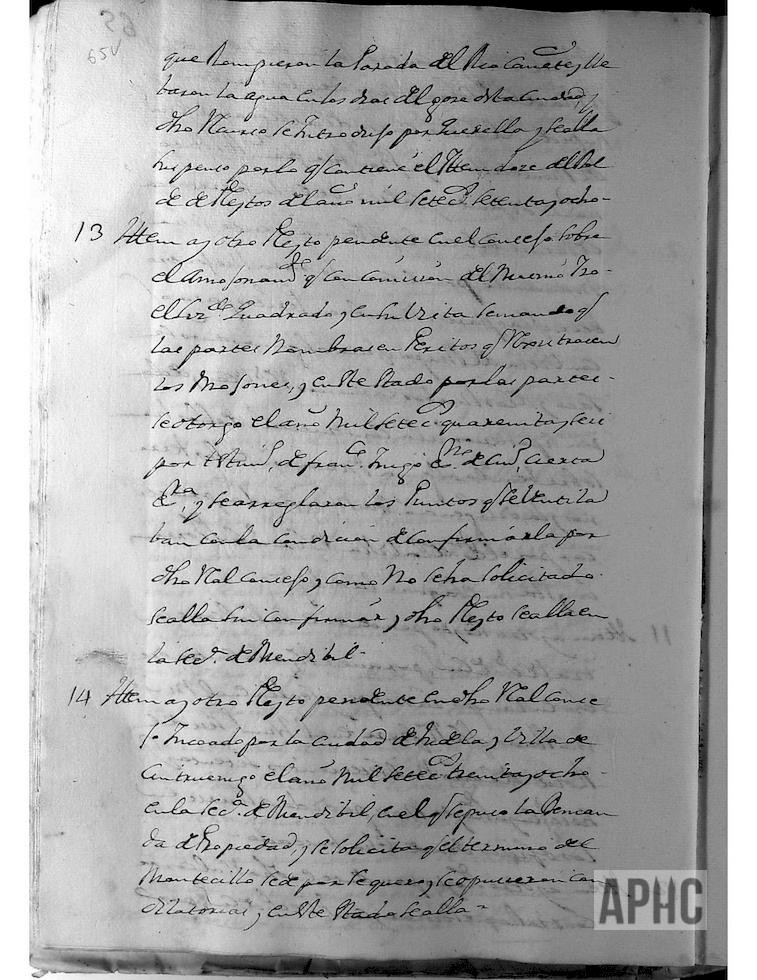 65v
que rompieron la Parada del Rio Cañete, y lle
baron la agua en los dias del goze de esta Ciudad, y
dho Nuevo se Introdujo por Querella y se alla
suspenso por lo q contiene el Ittem doze del Rol
de de Pleytos del año mil setec.s setenta y ocho-
13 Ittem ay otro Pleyto pendente en el Consejo sobre
el Amojonam.to q con Comision del Mismo Tro-
el Liz.do Quadrado, y en su Vista se mando q
las partes Nombrasen Peritos q Rexistrasen
los Mojones, y en este estado por las partes
se otorgo el año Mil setec.s quarenta y seis
por testim.o de fran.co Inigo es.no de Cin.o cierta
es.ra y se arreglaron los Puntos q se Ventila
ban con la Condicion de Confirmarla por
dho Rl Consejo, y como No se ha Solicitado
se alla sin Confirmar, y dho Pleyto se alla en
la sec.a de Mendibil-
14 Ittem ay otro Pleyto pendente en dho Rl Conse
jo Incoado por la Ciudad de Tudela, y Villa de
Cintruenigo el año Mil setec.s treinta y ocho-
en la sec.a de Mendibil, en el q se puso la Deman
da de Propiedad, y se solicita q el termino del
Montecillo sea por se quero, y se opusieron con
dilatorias, y en este estado se alla-
11
APHC